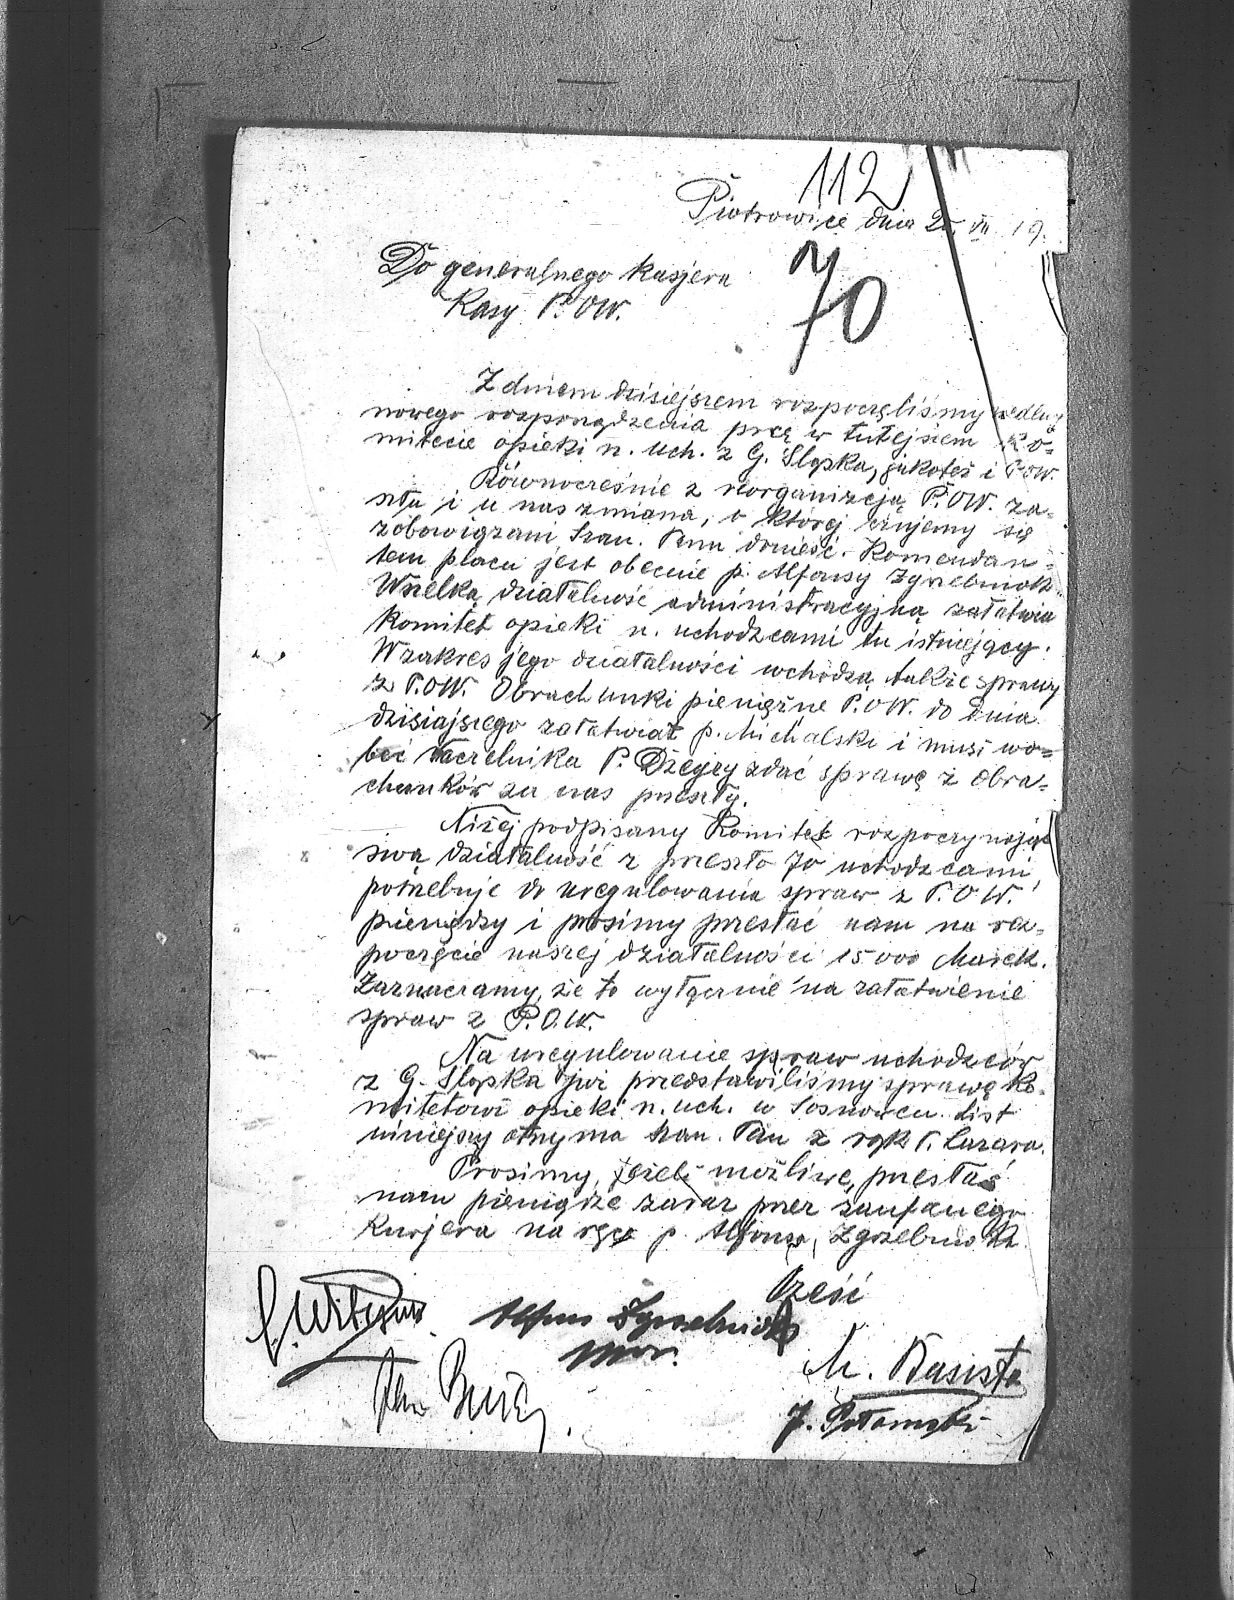 112
Piotrowice dnia VII. 19.
70
Do generalnego kasjera
Kasy P.OW.
Z dniem dzisiejszem rozpoczęliśmy według
nowego rozporządzenia pracę w tutejsiem Ko-
mitecie opieki n. uch. z G. Śląska, jakoteż i P.OW.
Równocześnie z reorganizcją P.OW. za-
szła i u nas zmiana, o której czujemy się
zobowiązani Szan. Panu donieść. Komendan-
tem placu jest obecnie p. Alfonsy Zgrzebniok.
Wszelką działalność administracyjną załatwia
Komitet opieki n. uchodzcami tu istniejący.
W zakres jego działalności wchodzą także sprawy
z P.OW. Obrachunki pieniężne P.OW. do dnia
dzisiajszego załatwiał p. Michalski i musi wo-
bec Naczelnika P. Dzegzy zdać sprawę z obra-
chunków za czas przeszły.
Niżej podpisany Komitet rozpoczynając
swa działalność z przeszło 70 uchodzcami,
potrzebuje do uregulowania spraw z P.O.W.
pieniędzy i prosimy przesłać nam na roz-
poczęcie naszej działalności 15000 Marek.
Zaznaczamy, że to wyłącznie na załatwienie
spraw z P.O.W.
Na uregulowanie spraw uchodzców
z G. Śląska już przedstawiliśmy sprawę Ko-
mitetowi opieki n. uch. w Sosnowcu. List
niniejszy otrzyma Szan. Pan z rąk P. Lazara.
Prosimy, jeżeli możliwe, przesłać
nam pieniądze zaraz przez zaufanego
Kurjera na ręce p. Alfonsa Zgrzebnioka
Cześć
Alfons Zgrzebniok
M. Basista
J. Potamski